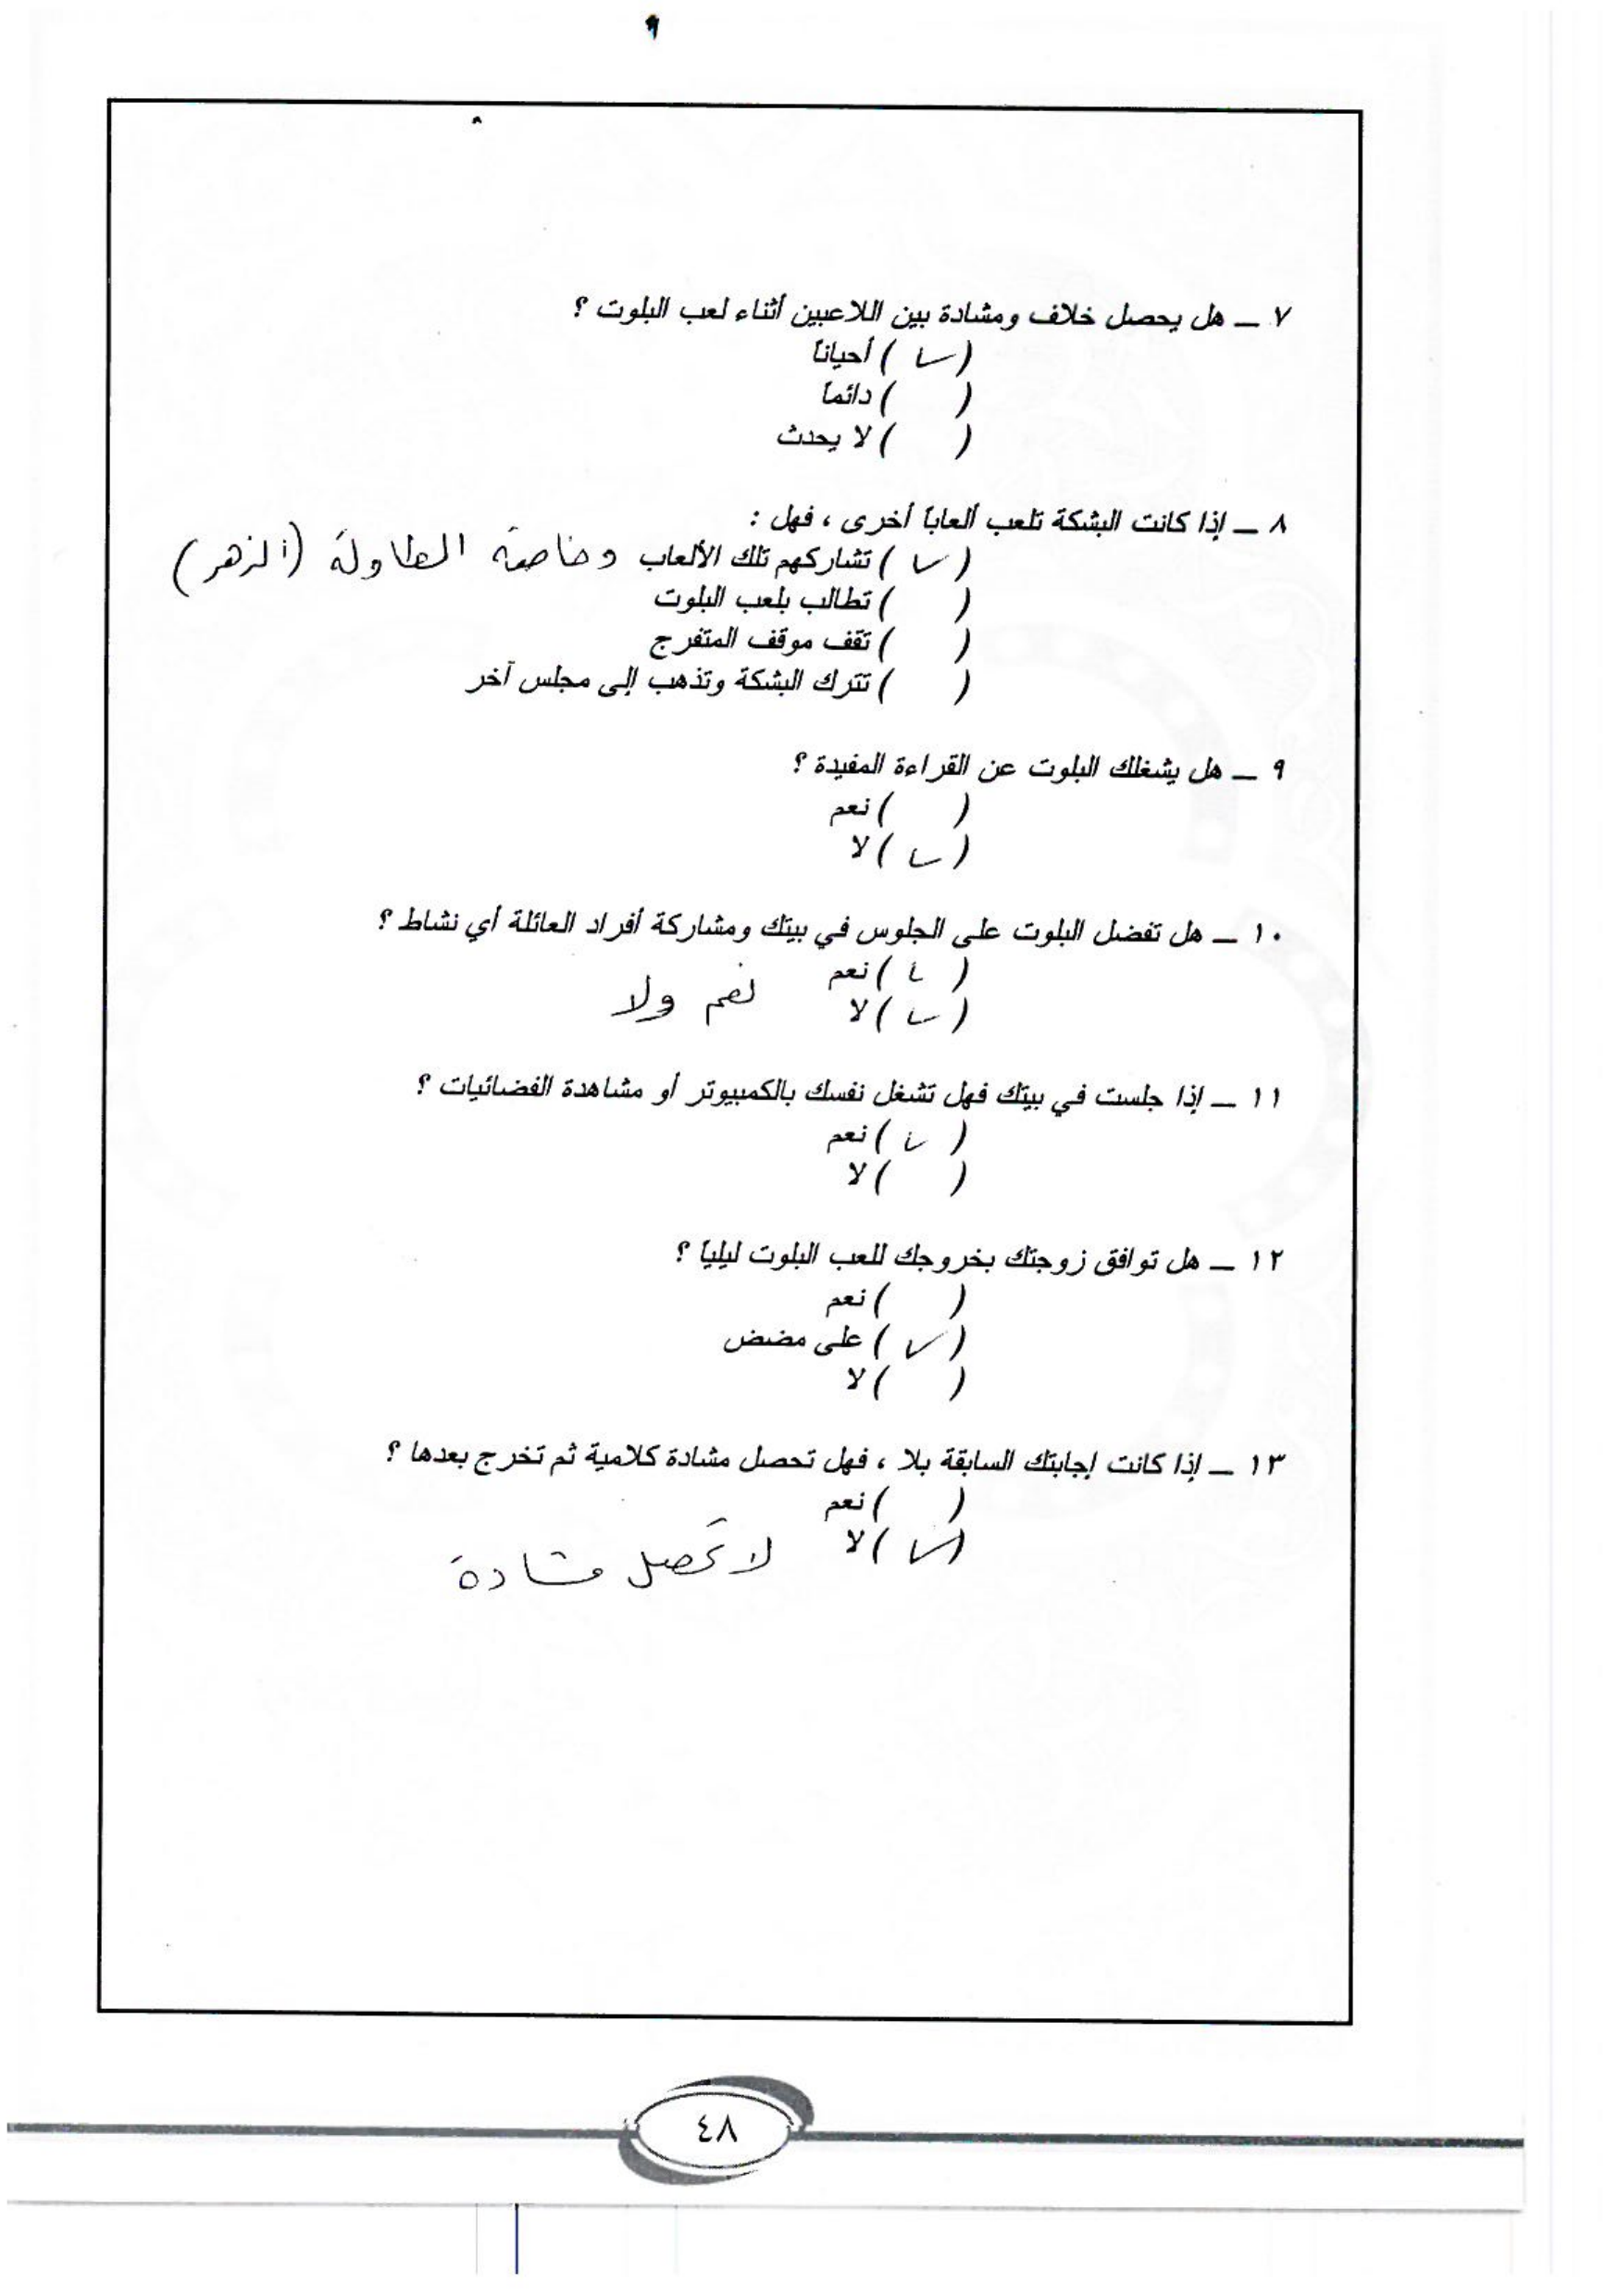 ٩
٧ ــ هل يحصل خلاف ومشادة بين اللاعبين أثناء لعب البلوت ؟
( ✓ ) أحياناً
(   ) دائماً
(   ) لا يحدث
٨ ــ إذا كانت البشكة تلعب ألعاباً أخرى ، فهل :
( ✓ ) تشاركهم تلك الألعاب وخاصة الطاولة (الزهر)
(   ) تطالب بلعب البلوت
(   ) تقف موقف المتفرج
(   ) تترك البشكة وتذهب إلى مجلس آخر
٩ ــ هل يشغلك البلوت عن القراءة المفيدة ؟
(   ) نعم
( ✓ ) لا
١٠ ــ هل تفضل البلوت على الجلوس في بيتك ومشاركة أفراد العائلة أي نشاط ؟
( ✓ ) نعم
( ✓ ) لا نعم ولا
١١ ــ إذا جلست في بيتك فهل تشغل نفسك بالكمبيوتر أو مشاهدة الفضائيات ؟
( ✓ ) نعم
(   ) لا
١٢ ــ هل توافق زوجتك بخروجك للعب البلوت ليلياً ؟
(   ) نعم
( ✓ ) على مضض
(   ) لا
١٣ ــ إذا كانت إجابتك السابقة بلا ، فهل تحصل مشادة كلامية ثم تخرج بعدها ؟
(   ) نعم
( ✓ ) لا لا تحصل مشادة
٤٨